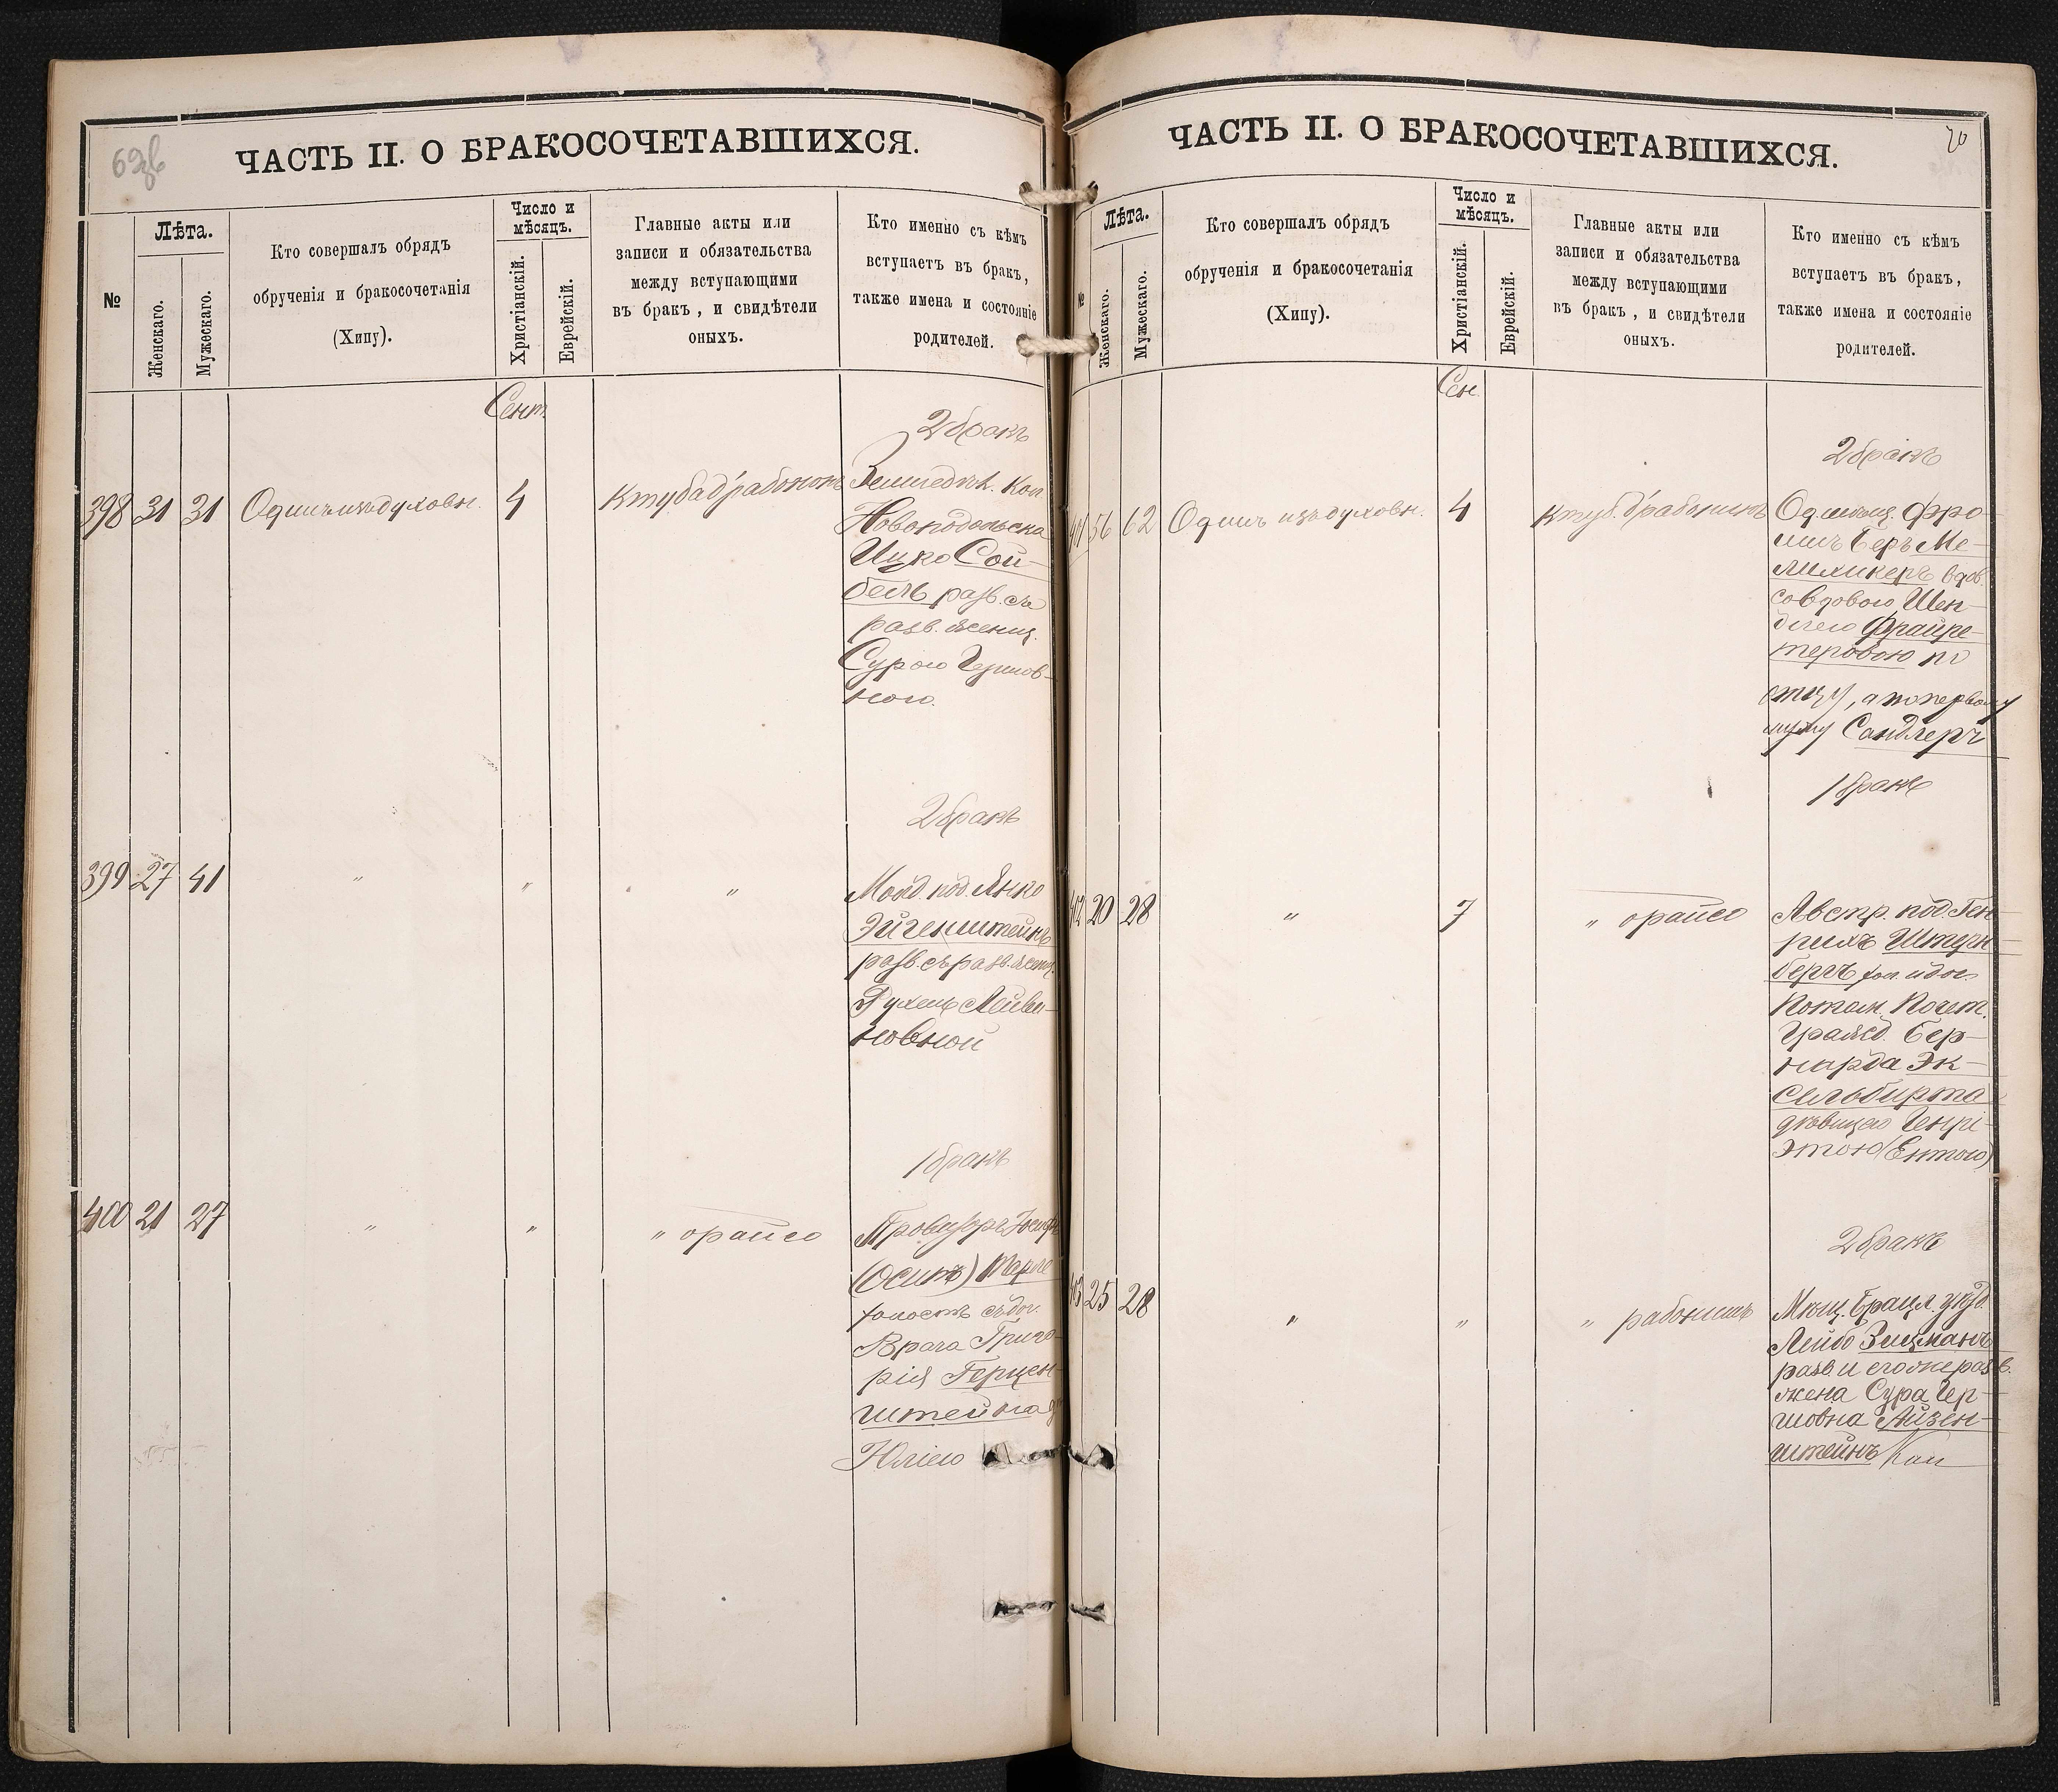 69об
ЧАСТЬ II. О БРАКОСОЧЕТАВШИХСЯ.
№
Лѣта.
Женскаго.
Мужескаго.
Кто совершалъ обрядъ
обрученія и бракосочетанія
(Хипу).
Число и
мѣсяцъ.
Христіанскій.
Еврейскій.
Главные акты или
записи и обязательства
между вступающими
въ бракъ, и свидѣтели
оныхъ.
Кто именно съ кѣмъ
вступаетъ въ бракъ,
также имена и состояніе
родителей.
Сент.
2 бракъ
398 31 31 Одинъ изъ духовн. 4 Ктуба д'рабононъ
Земледѣл. Кол.
Новоподольска
Ицко Сой-
бель разв. съ
разв. женщ.
Сурою Гершов-
ною.
2 бракъ
399 27 41 " " "
Молд. под. Янко
Эйгенштейнъ
разв. съ разв. женщ.
Рухель Лейви-
новной
1 бракъ
400 21 27 " " " орайсо
Провизоръ Іосифъ
(Осипъ)
холостъ съ доч.
Врача Григо-
рія Герцен-
штейна
Юліею
20
ЧАСТЬ II. О БРАКОСОЧЕТАВШИХСЯ.
№
Лѣта.
Женскаго.
Мужескаго.
Кто совершалъ обрядъ
обрученія и бракосочетанія
(Хипу).
Число и
мѣсяцъ.
Христіанскій.
Еврейскій.
Главные акты или
записи и обязательства
между вступающими
въ бракъ, и свидѣтели
оныхъ.
Кто именно съ кѣмъ
вступаетъ въ бракъ,
также имена и состояніе
родителей.
Сен.
2 бракъ
56 62 Одинъ изъ духовн. 4 Ктуб. д'рабонинъ
Од. мѣщ. Фро-
имъ Беръ Ме-
линикеръ вдов.
со вдовою Шен-
делею Фрайре-
теровою по
отцу, а по первому
мужу Сандлеръ
1 бракъ
20 28 " 7 " орайсо
Австр. под. Ген-
рихъ Штерн-
бергъ хол. и доч.
Потом. Почет.
Гражд. Бер-
нарда Эк-
сельбирта
дѣвицею Генрі-
этою (Ентою)
2 бракъ
25 28 " " " рабонинъ
Мѣщ. Брацл. уѣзд.
Лейбо Зицманъ
разв. и его же разв.
жена Сура Гер-
шовна Айзен-
штейнъ